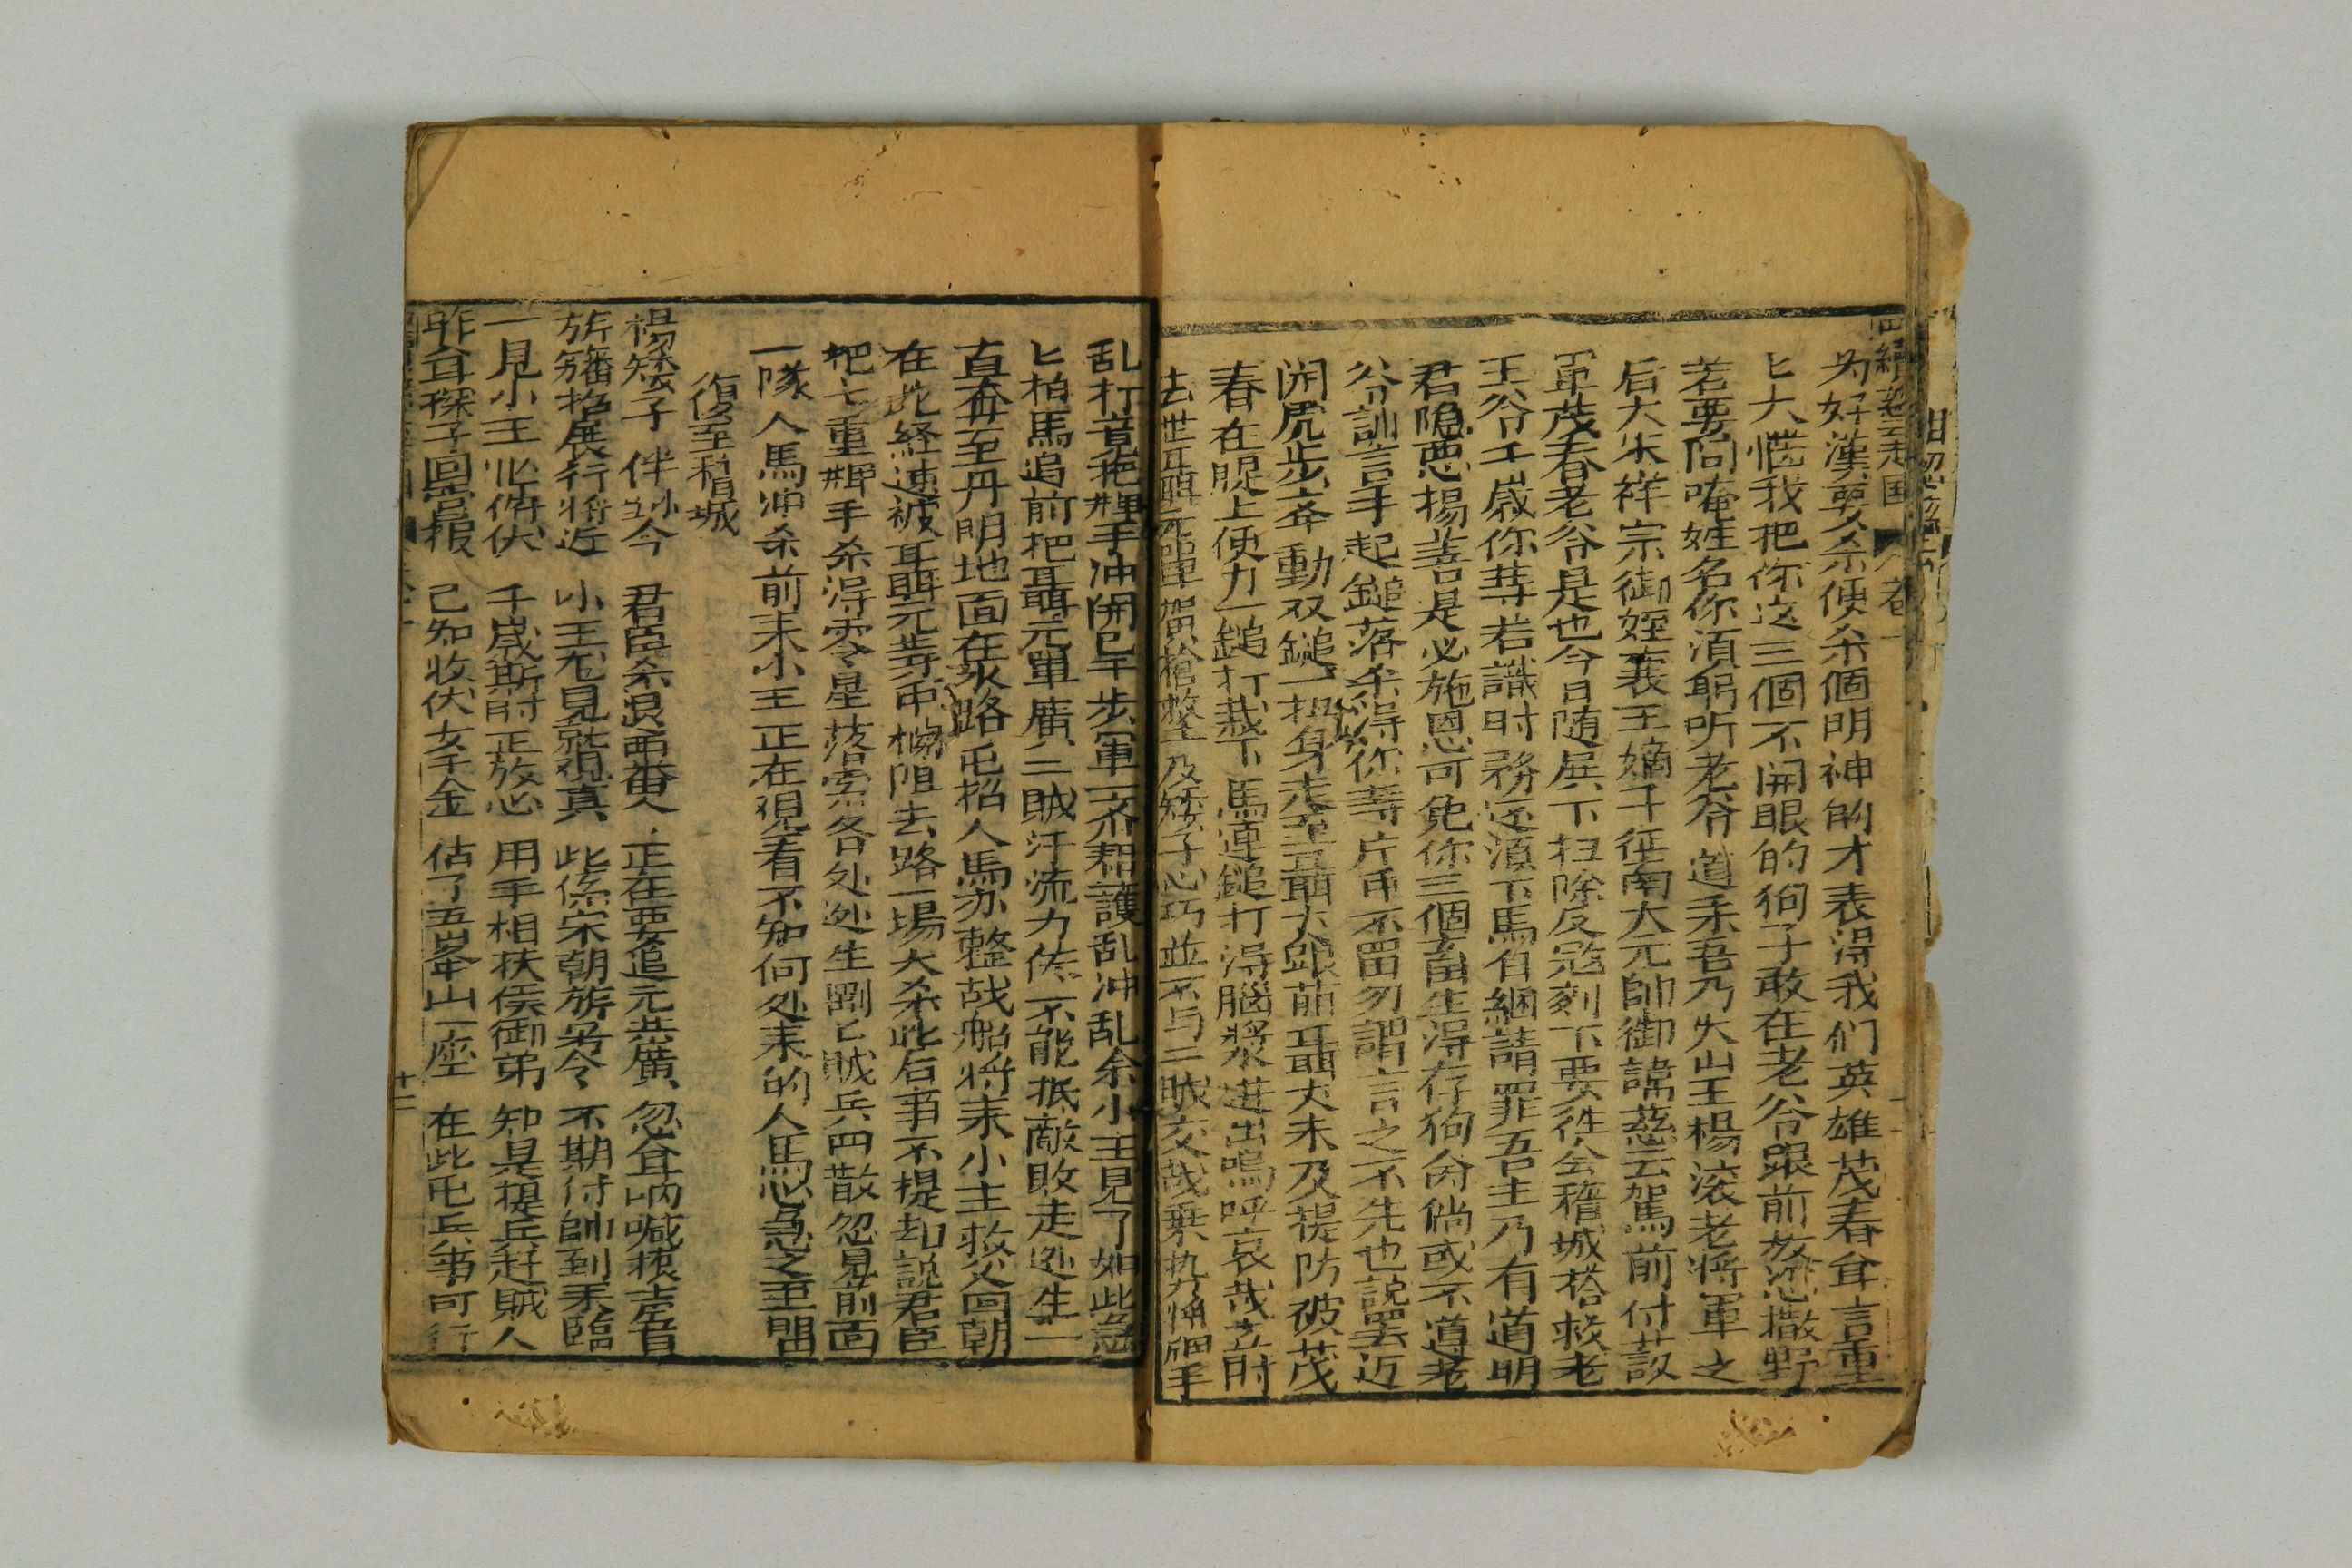 为好漢要杀便杀個明神的才表得我们英雄茂春耳言重
匕大惱我把你这三個不開眼的狗子敢在老爷跟前放惡撒野
若要问唵姓名你須躬听老爷道来吾乃火山王楊滚老将軍之
后大宋祥宗御姪襄王嫡子征南大元帥御諱慈云駕前付
軍茂春老爷是也今日随展下扫除反冦刻下要徃会稽城搭救老
王爷千歲你䓁若識时務还須下馬自綑請罪吾主乃有道明
君隐惡揚善是必施恩可免你三個畜生得存狗命倘或不道老
爷訓言手起鎚落杀得你䓁片甲不留勿謂言之不先也說罢迈
開虎步奔動双鎚一扭身走至聶大跟前聶大未及提防破茂
春在腿上使力一鎚打落下馬連鎚打得腦漿迸出嗚呼哀哉立时
去世聶元單廣槍整及矮子心巧並不与二賊交战乗势将牌手
乱打竟把牌手冲開已千步軍一齐相護乱冲乱杀小主見了如此忩
匕拍馬追前把聶元單廣二賊汗流力怯不能抵敵敗走迯生一
直奔至丹阳地面在水路屯招人馬亦整战船将来小主救父回朝
在此経速被聶元䓁帀柵阻去路一場大杀此后事不提却說君臣
把七重牌手杀得零星落索各处迯生劉匕賊兵四散忽見前面
一隊人馬冲杀前来小王正在观看不知何处来的人馬忩急之至閗
復至稽城
楊矮子伴小主今　君臣杀退西番人　正在要追元共廣　忽耳呐喊振声音
旂旛招展行将近　小王冚見就观真　此係宋朝旂号令　不期付帥到来臨
一見小王忙俯伏　千歲斯时正放心　用手相扶侯御弟　知是提兵赶賊人
昨耳探子回营报　已知收伏女千金　估了五峯山一座　在此屯兵事可行
卷一
十二